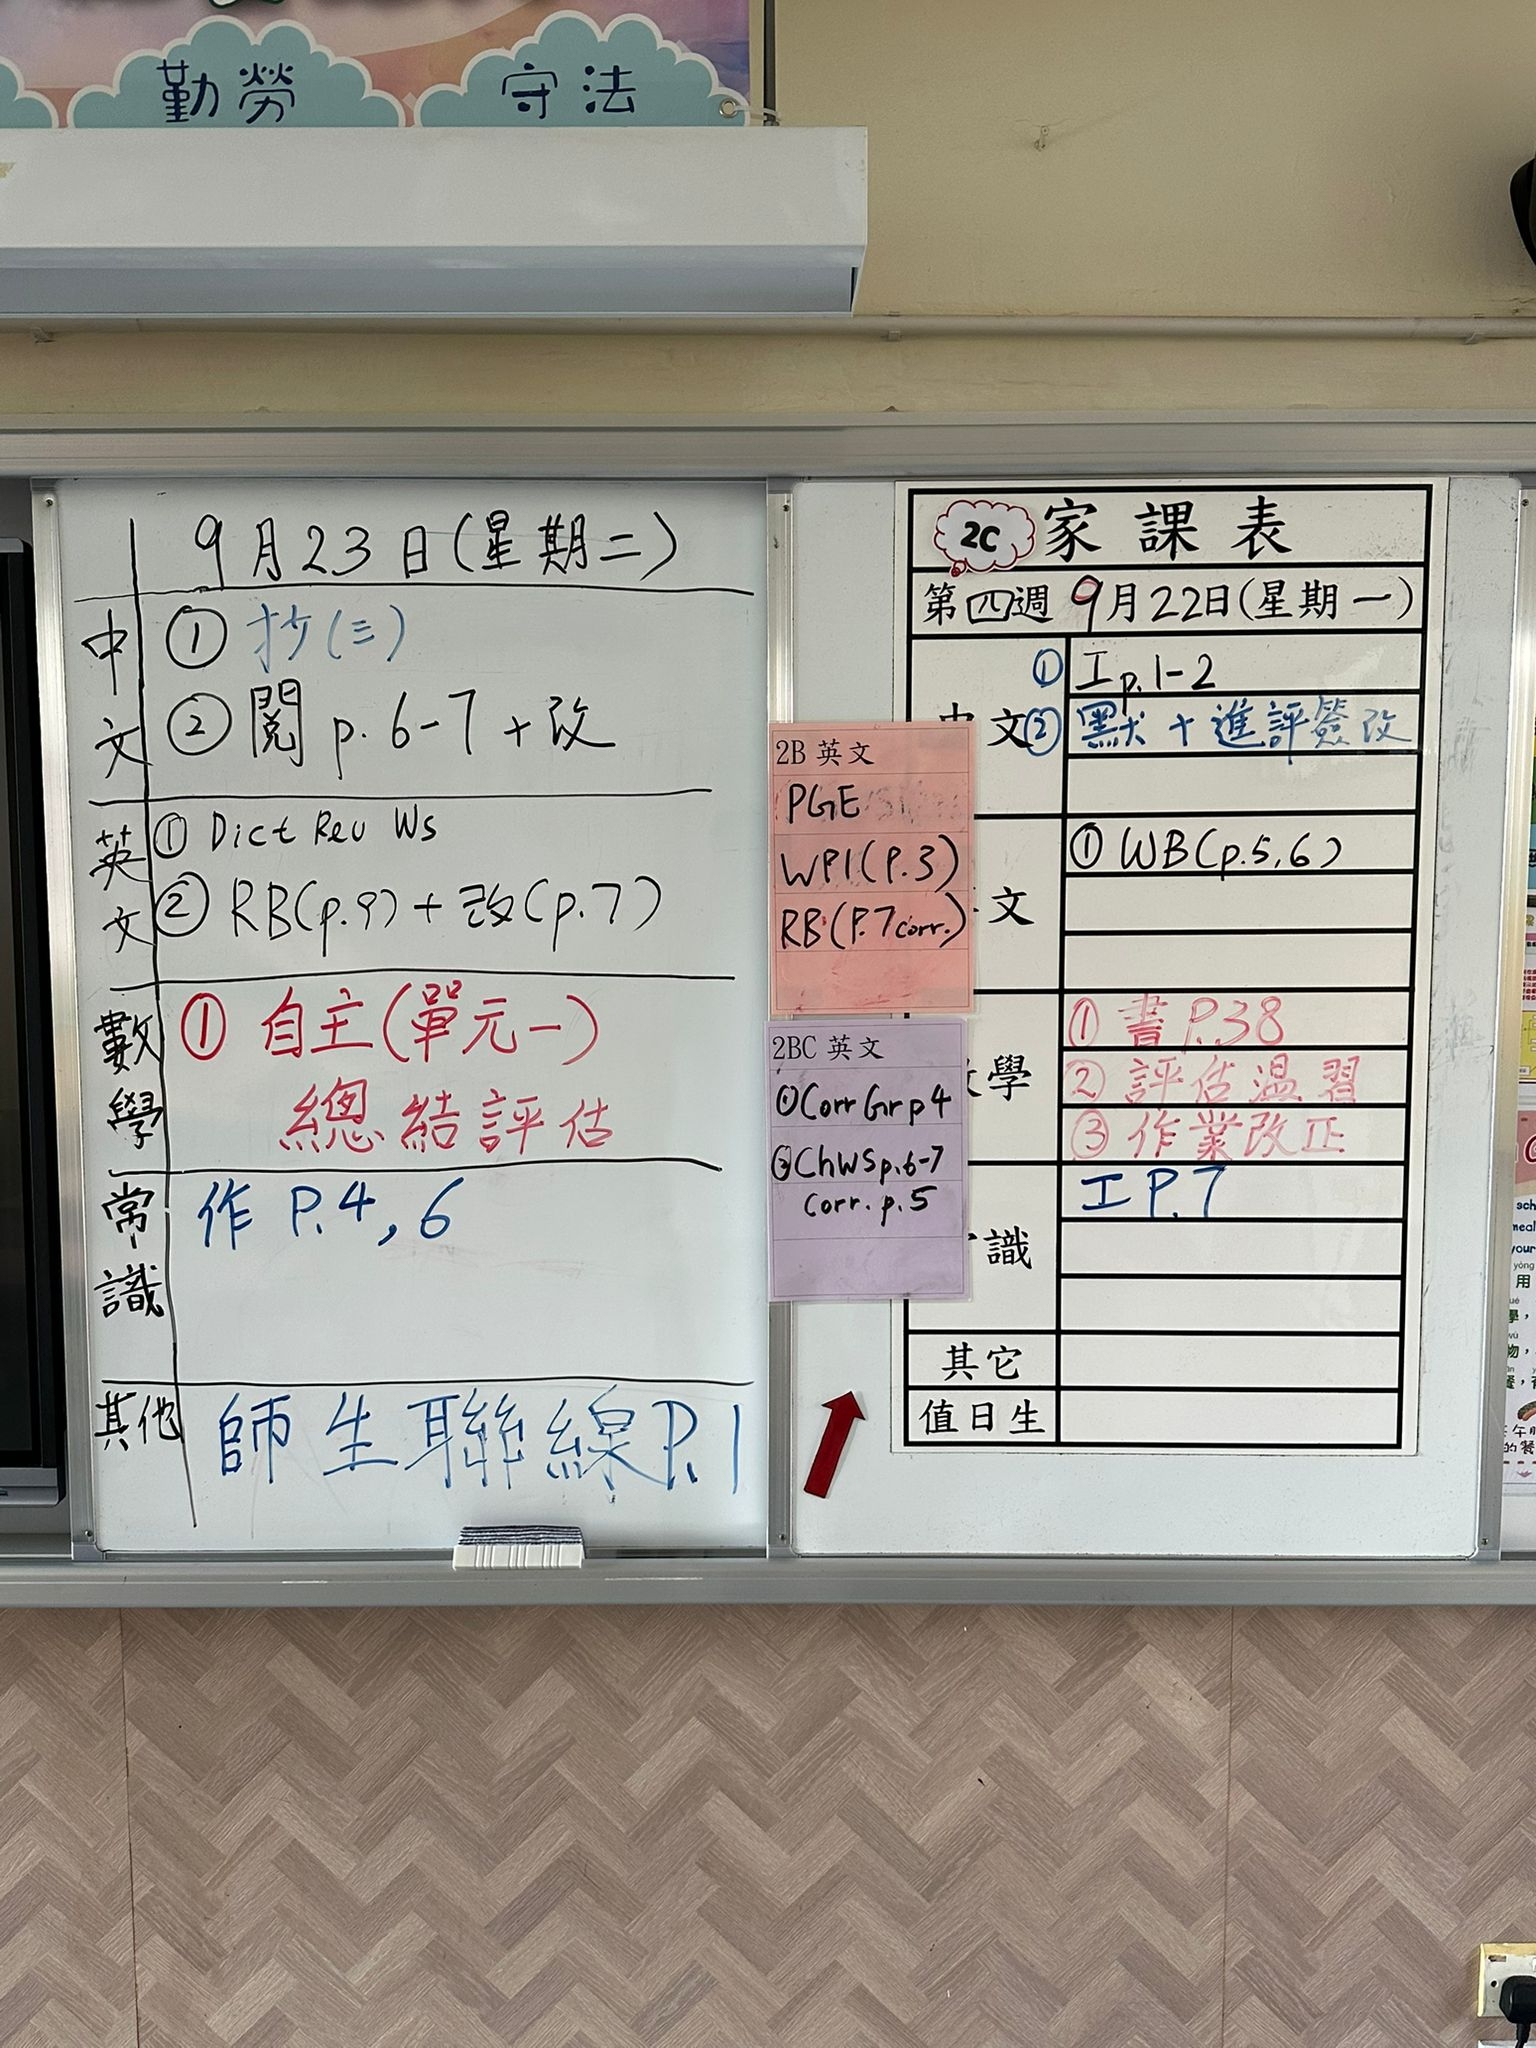 勤勞
守法
9月23日(星期二)
中文
① 抄(三)
② 閱 p. 6-7 + 改
英文
① Dict Rev Ws
② RB(p.9) + 改(p.7)
數學
① 自主(單元一)
總結評估
常識
作 P.4, 6
其他
師生聯線P.1
2B 英文
PGE
WP1(P.3)
RB(P.7corr.)
2BC 英文
①Corr Gr p4
②ChWSp.6-7
Corr. p.5
2C 家課表
第四週 9月22日(星期一)
文
① 工p.1-2
② 默 + 進評簽改
文
① WB(p.5,6)
學
① 書 P.38
② 評估溫習
③ 作業改正
識
工 P.7
其它
值日生